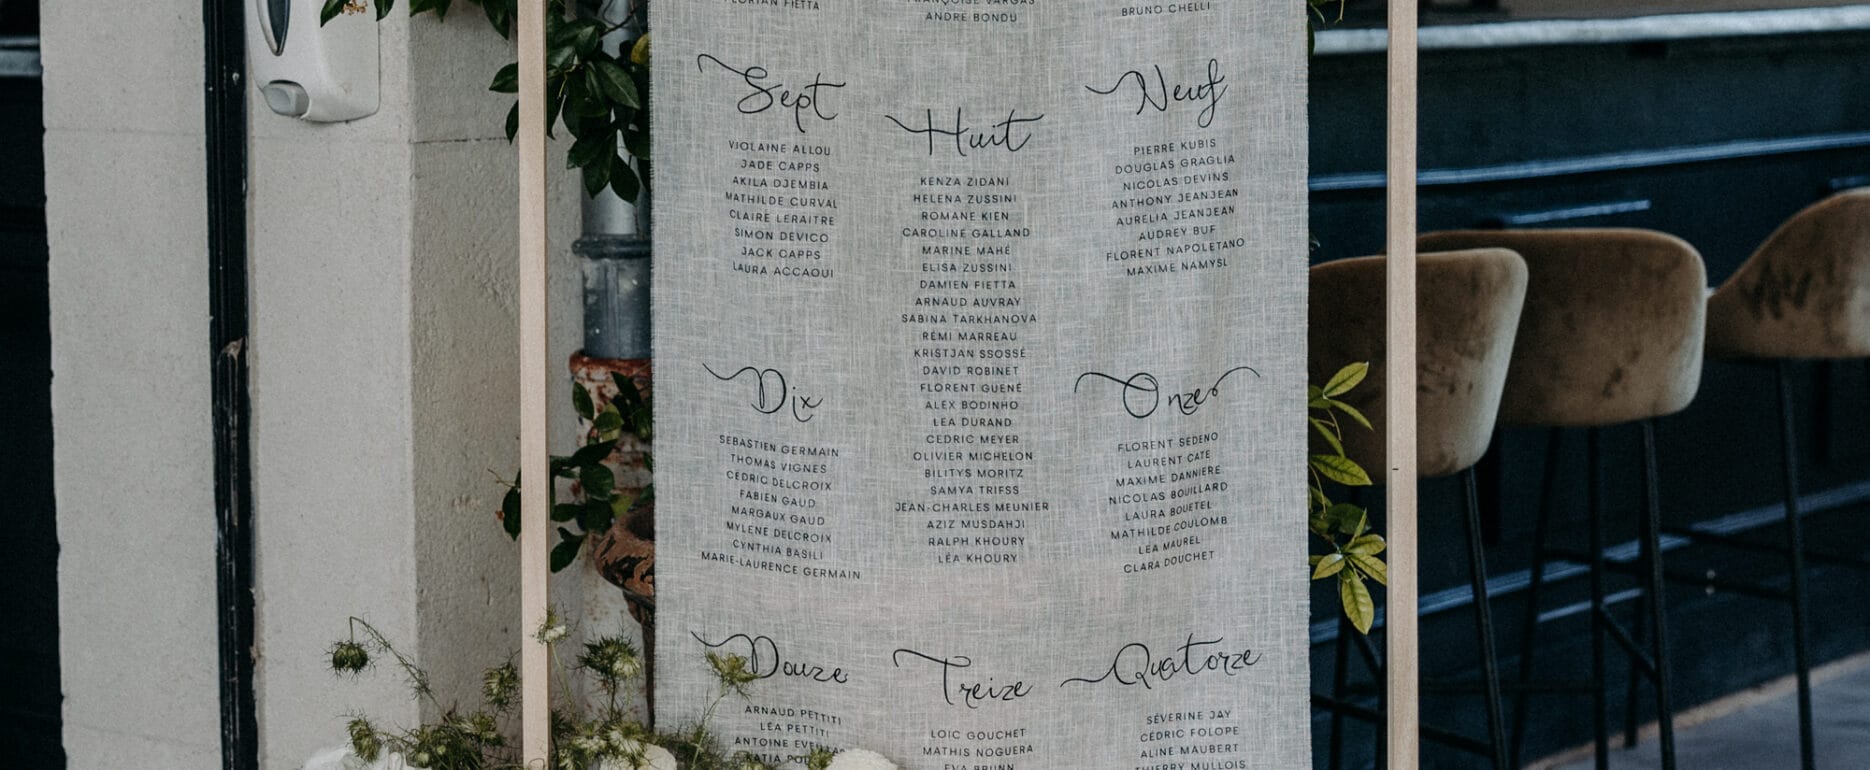 FLORIAN FIETTA
FRANÇOISE VARGAS
ANDRE BONDU
BRUNO CHELLI
Sept
VIOLAINE ALLOU
JADE CAPPS
AKILA DJEMBIA
MATHILDE CURVAL
CLAIRE LERAITRE
SIMON DEVICO
JACK CAPPS
LAURA ACCAOUI
Huit
KENZA ZIDANI
HELENA ZUSSINI
ROMANE KIEN
CAROLINE GALLAND
MARINE MAHÉ
ELISA ZUSSINI
DAMIEN FIETTA
ARNAUD AUVRAY
SABINA TARKHANOVA
RÉMI MARREAU
KRISTJAN SSOSSÉ
DAVID ROBINET
FLORENT GUENÉ
ALEX BODINHO
LEA DURAND
CEDRIC MEYER
OLIVIER MICHELON
BILITYS MORITZ
SAMYA TRIFSS
JEAN-CHARLES MEUNIER
AZIZ MUSDAHJI
RALPH KHOURY
LÉA KHOURY
Neuf
PIERRE KUBIS
DOUGLAS GRAGLIA
NICOLAS DEVINS
ANTHONY JEANJEAN
AURELIA JEANJEAN
AUDREY BUF
FLORENT NAPOLETANO
MAXIME NAMYSL
Dix
SEBASTIEN GERMAIN
THOMAS VIGNES
CEDRIC DELCROIX
FABIEN GAUD
MARGAUX GAUD
MYLENE DELCROIX
CYNTHIA BASILI
MARIE-LAURENCE GERMAIN
Onze
FLORENT SEDENO
LAURENT CATE
MAXIME DANNIERE
NICOLAS BOUILLARD
LAURA BOUETEL
MATHILDE COULOMB
LEA MAUREL
CLARA DOUCHET
Douze
ARNAUD PETTITI
LÉA PETTITI
ANTOINE
KATIA
Treize
LOIC GOUCHET
MATHIS NOGUERA
EVA BRUNN
Quatorze
SÉVERINE JAY
CÉDRIC FOLOPE
ALINE MAUBERT
THIERRY MULLOIS